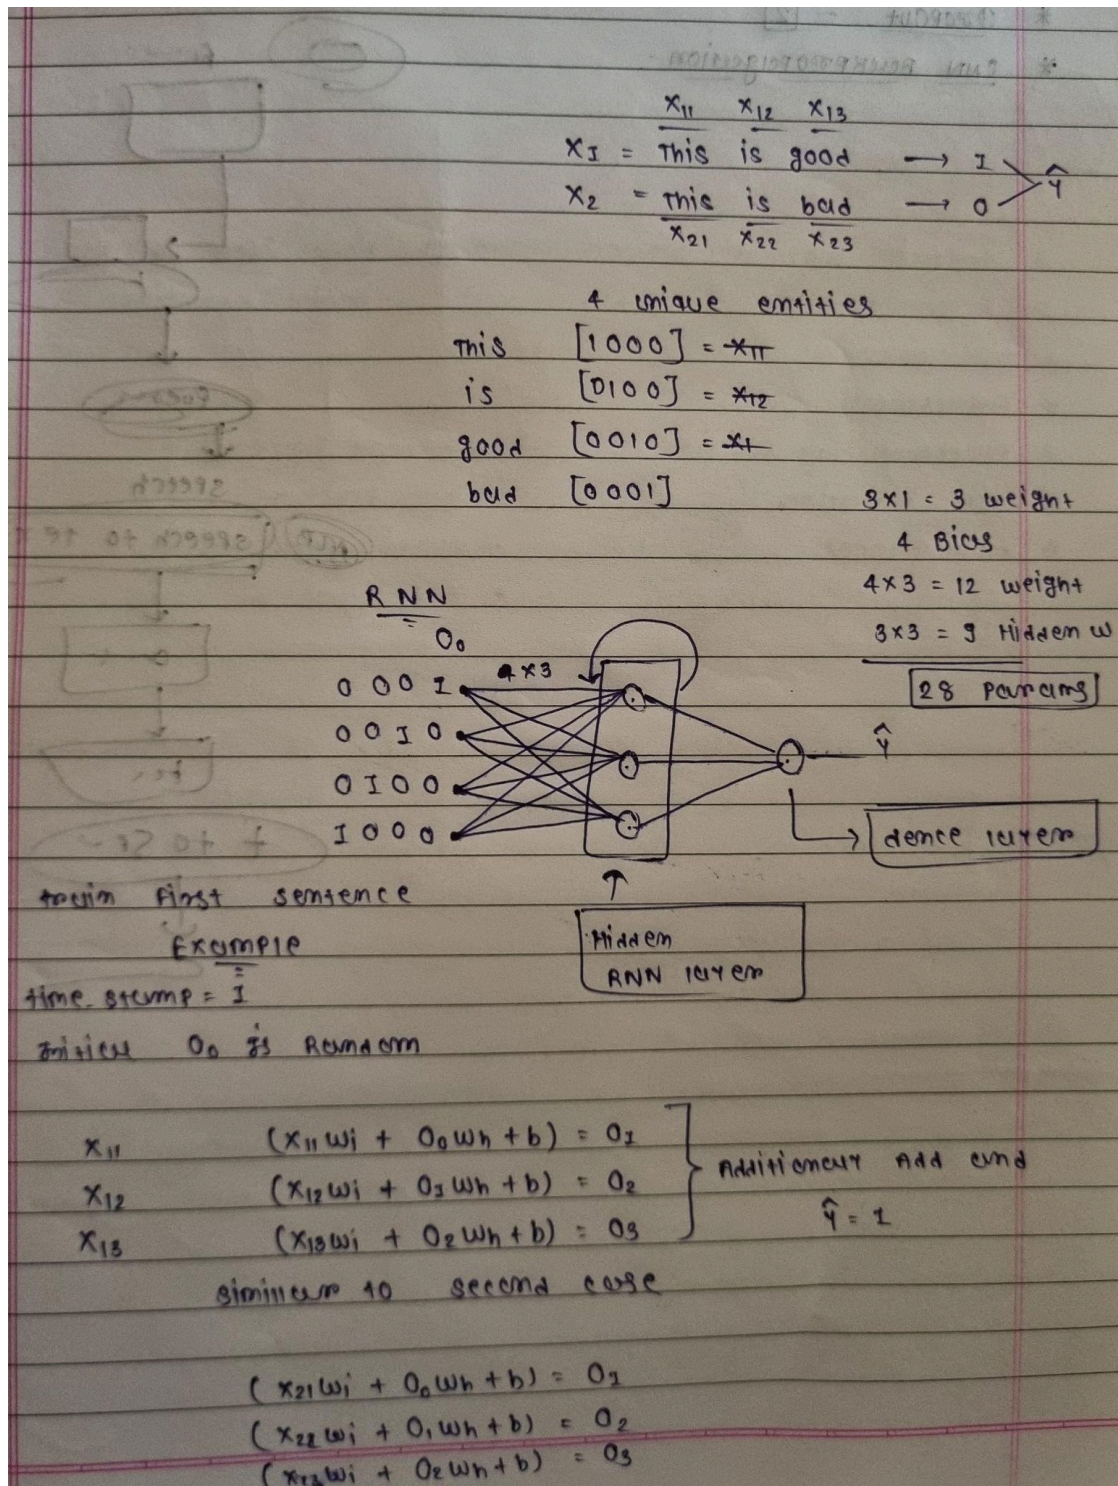 x11 x12 x13
xI = This is good → I
Ŷ
x2 = This is bad → 0
x21 x22 x23
4 unique entities
This [1000] = x11
is [0100] = x12
good [0010] = x1
bad [0001]
3x1 = 3 weight
4 Bias
4x3 = 12 weight
3x3 = 9 Hidden w
28 Params
RNN
O0
4x3
0 0 0 I
0 0 I 0
0 I 0 0
I 0 0 0
Ŷ
dence layer
train first sentence
Hidden
RNN layer
Example
time stamp = I
Initial O0 is Random
x11 (x11wi + O0wh + b) = OI
x12 (x12wi + OIwh + b) = O2
x13 (x13wi + O2wh + b) = O3
Additionaly Add and
Ŷ = 1
similler to second case
(x21wi + O0wh + b) = OI
(x22wi + O1wh + b) = O2
(x23wi + O2wh + b) = O3